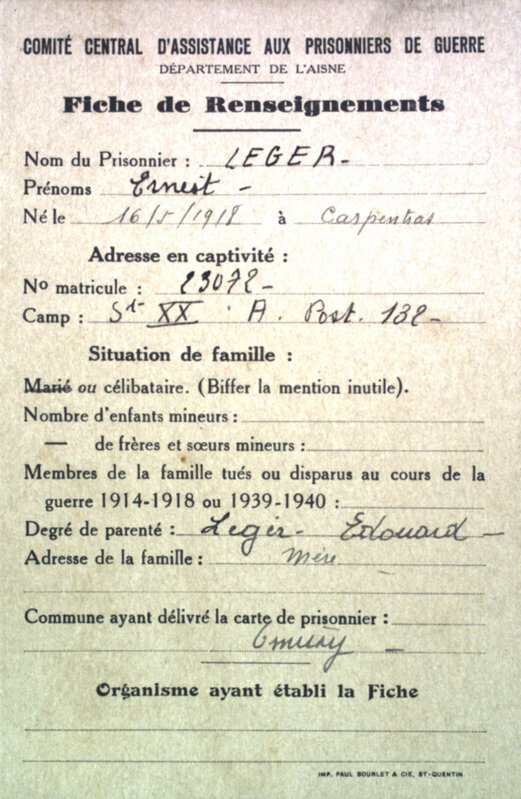 COMITÉ CENTRAL D'ASSISTANCE AUX PRISONNIERS DE GUERRE
DÉPARTEMENT DE L'AISNE
Fiche de Renseignements
Nom du Prisonnier : LEGER -
Prénoms Ernest -
Né le 16/5/1918 à Carpentras
Adresse en captivité :
No matricule : 23072 -
Camp : St XX A. Post. 132 -
Situation de famille :
Marié ou célibataire. (Biffer la mention inutile).
Nombre d'enfants mineurs :
— de frères et sœurs mineurs :
Membres de la famille tués ou disparus au cours de la
guerre 1914-1918 ou 1939-1940 :
Degré de parenté : Leger - Edouard -
Adresse de la famille : Mère
Commune ayant délivré la carte de prisonnier :
Organisme ayant établi la Fiche
IMP. PAUL BOURLET & CIE, ST-QUENTIN